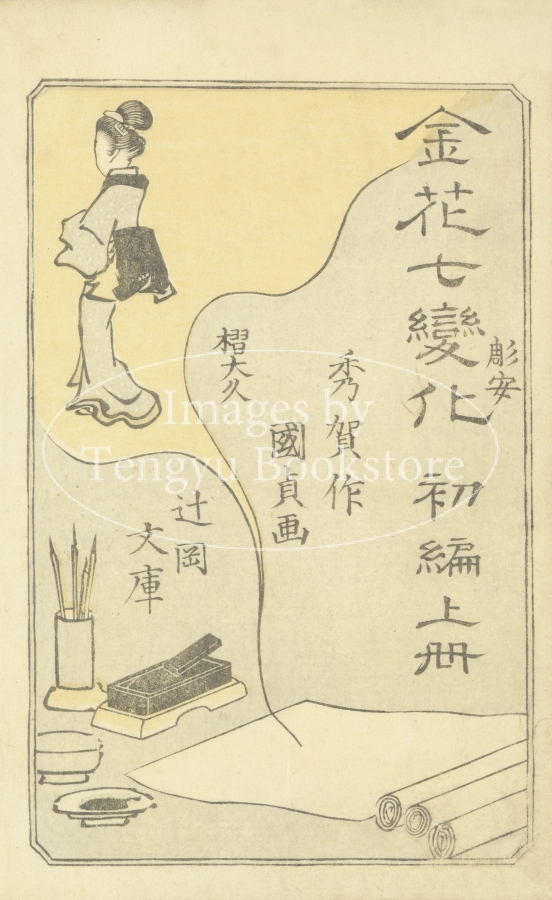 金花七變化 初編上冊
彫安
秀賀作
國貞画
摺大久
辻岡
文庫
Images by
Tengyu Bookstore